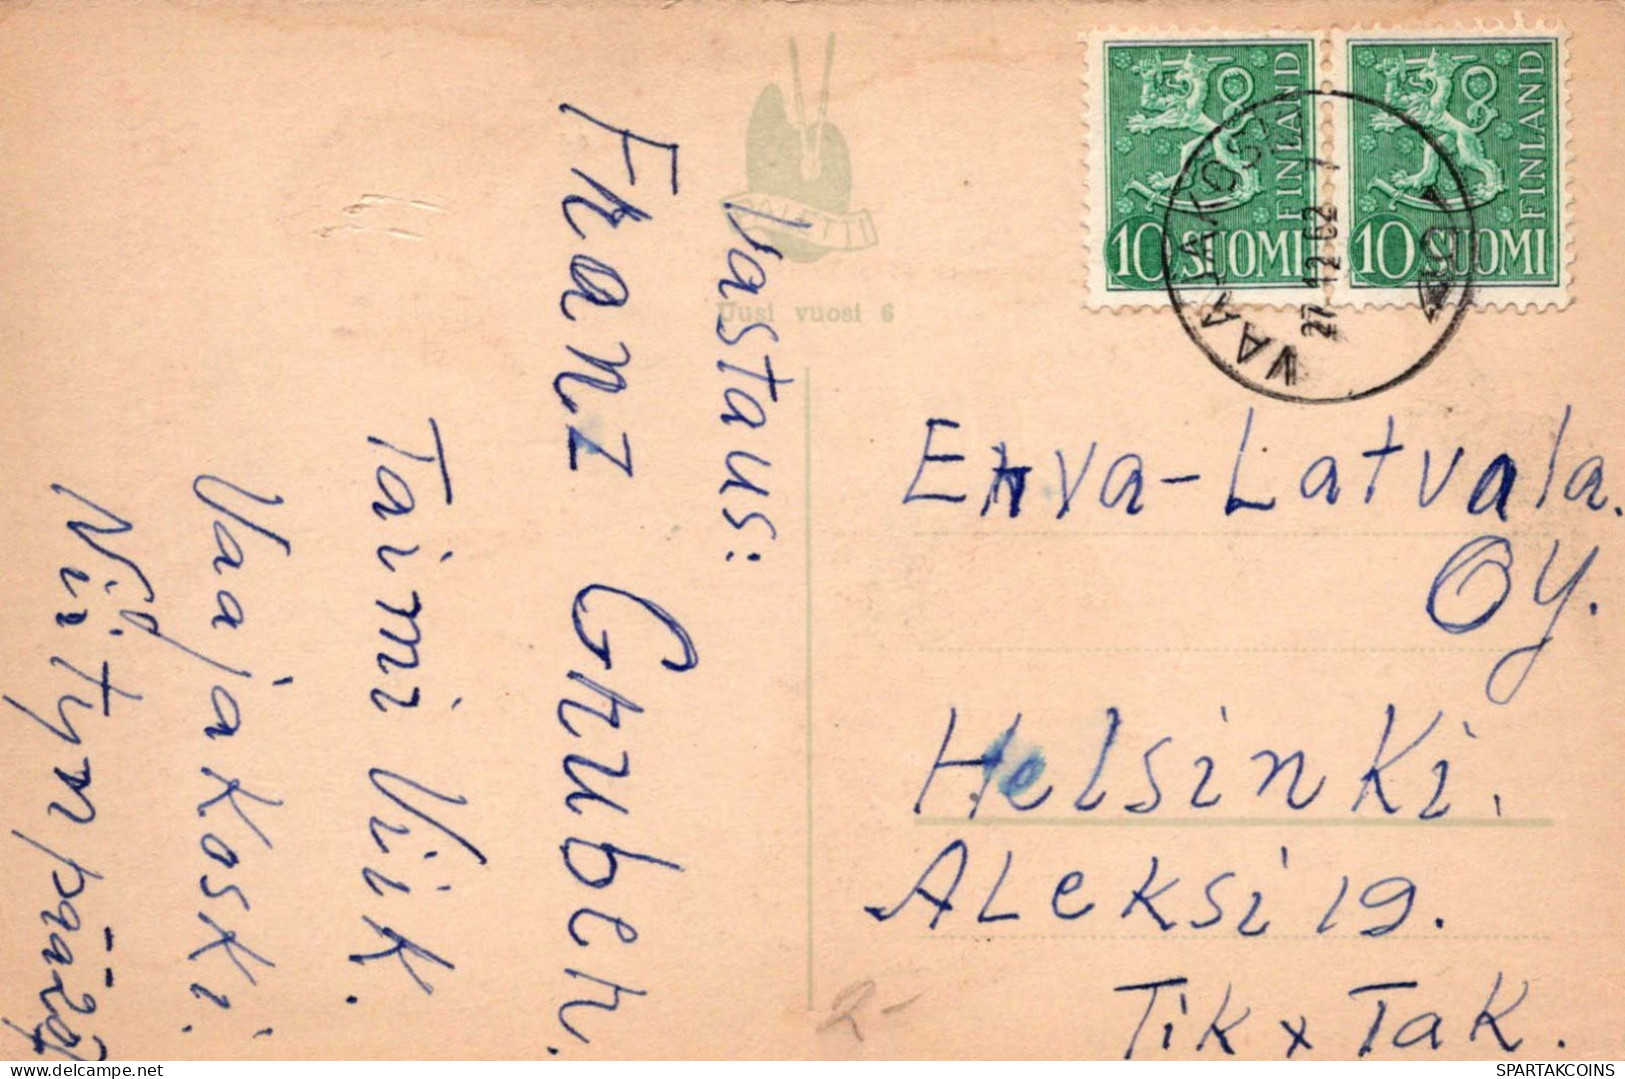 PALETTI
Uusi vuosi 6
Vastaus:
Franz Gruber.
Taimi Viik.
Vaajakoski.
Niitynpää
FINLAND
10 SUOMI
FINLAND
10 SUOMI
VAAJAKOSKI
27.12.62 - 7
Erva-Latvala.
OY.
Helsinki.
Aleksi 19.
Tik x Tak.
2-
SPARTAKCOINS
delcampe.net